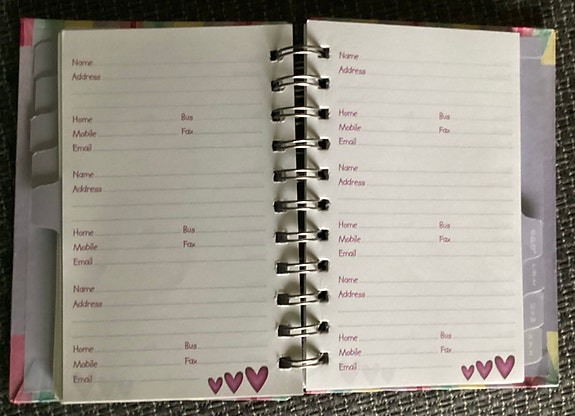 Name
Address
Home Bus
Mobile Fax
Email
Name
Address
Home Bus
Mobile Fax
Email
Name
Address
Home Bus
Mobile Fax
Email
Name
Address
Home Bus
Mobile Fax
Email
Name
Address
Home Bus
Mobile Fax
Email
Name
Address
Home Bus
Mobile Fax
Email